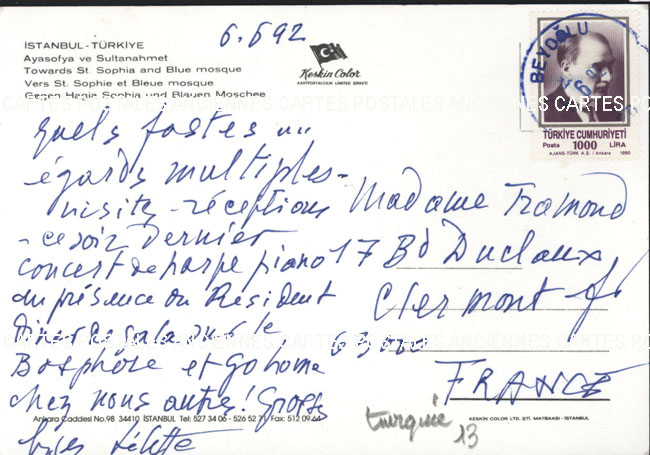 6.6 92
İSTANBUL - TÜRKİYE
Ayasofya ve Sultanahmet
Towards St. Sophia and Blue mosque
Vers St. Sophie et Bleue mosque
Gegen Hegie Sophia und Blauen Moschee
Keskin Color
KARTPOSTALCILIK LIMITED ŞİRKETİ
BEYOĞLU
TÜRKİYE CUMHURİYETİ
Posta 1000 LİRA
AJANS-TÜRK A.Ş. / Ankara 1990
CARTES POSTALES ANCIENNES CARTES POSTALES ANCIENNES
quels fastes
égards multiples -
visites - réceptions
- ce soir dernier
concert de harpe piano
en présence du Président
Dîner de gala sur le
Bosphore et go home
chez nous autres! Grosses
bises
Madame Tramond
17 Bd Duclaux
Clermont fd
63000
FRANCE
Ankara Caddesi No.98 34410 İSTANBUL Tel: 527 34 06 - 526 52 71 Fax: 512 09 64
KESKIN COLOR LTD. ŞTİ. MATBAASI - İSTANBUL
turquie
13